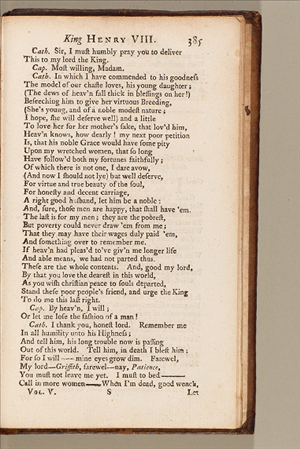 King HENRY VIII. 385
Cath. Sir, I must humbly pray you to deliver
This to my lord the King.
Cap. Most willing, Madam.
Cath. In which I have commended to his goodness
The model of our chaste loves, his young daughter;
(The dews of heav'n fall thick in blessings on her!)
Beseeching him to give her virtuous Breeding,
(She's young, and of a noble modest nature;
I hope, she will deserve well) and a little
To love her for her mother's sake, that lov'd him,
Heav'n knows, how dearly! my next poor petition
Is, that his noble Grace would have some pity
Upon my wretched women, that so long
Have follow'd both my fortunes faithfully;
Of which there is not one, I dare avow,
(And now I should not lye) but well deserve,
For virtue and true beauty of the soul,
For honesty and decent carriage,
A right good husband, let him be a noble:
And, sure, those men are happy, that shall have 'em.
The last is for my men; they are the poorest,
But poverty could never draw 'em from me;
That they may have their wages duly paid 'em,
And something over to remember me.
If heav'n had pleas'd to've giv'n me longer life
And able means, we had not parted thus.
These are the whole contents. And, good my lord,
By that you love the dearest in this world,
As you wish christian peace to souls departed,
Stand these poor people's friend, and urge the King
To do me this last right.
Cap. By heav'n, I will;
Or let me lose the fashion of a man!
Cath. I thank you, honest lord. Remember me
In all humility unto his Highness;
And tell him, his long trouble now is passing
Out of this world. Tell him, in death I blest him;
For so I will — mine eyes grow dim. Farewel,
My lord—Griffith, farewel—nay, Patience,
You must not leave me yet. I must to bed——
Call in more women——When I'm dead, good wench,
VOL. V. S Let